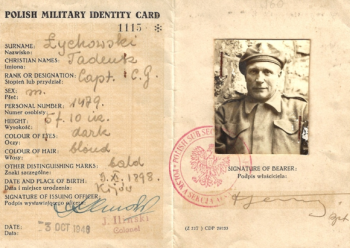 POLISH MILITARY IDENTITY CARD
1115 *
SURNAME: Lychowski
Nazwisko:
CHRISTIAN NAMES: Tadeusz
Imiona:
RANK OR DESIGNATION: Capt. C.G.
Stopień lub przydział:
SEX: m.
Płeć:
PERSONAL NUMBER:
Numer osobisty:
HEIGHT: 5 f. 10 in.
Wysokość:
COLOUR OF EYES: dark
Oczy:
COLOUR OF HAIR: blond
Włosy:
OTHER DISTINGUISHING MARKS: bald
Znaki szczególne:
DATE AND PLACE OF BIRTH: 1898.
Data i miejsce urodzenia: Kijów
SIGNATURE OF ISSUING OFFICER:
Podpis wystawiającego
Colonel
DATE: 3 OCT 1940
Data:
SIGNATURE OF BEARER:
Podpis właściciela: